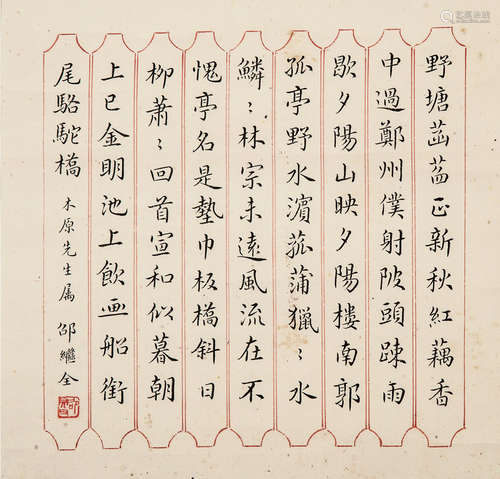 野塘菡萏正新秋紅藕香
中過鄭州僕射陂頭踈雨
歇夕陽山映夕陽樓南郭
孤亭野水濵菰蒲獵〻水
鱗〻林宗未遠風流在不
愧亭名是墊巾板橋斜日
柳蕭〻回首宣和似暮朝
上巳金明池上飲画船銜
尾駱駝橋 木原先生属 邵繼全